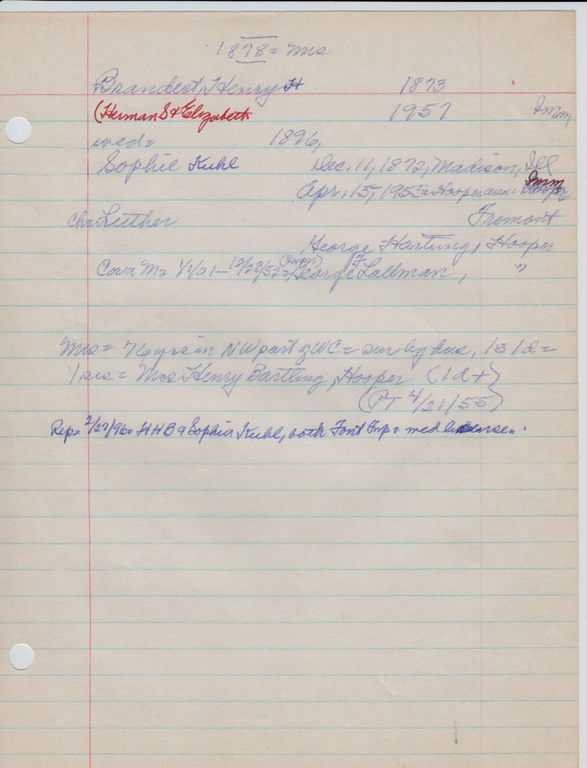 1878 = Mrs
Brandert, Henry H 1873
(Herman S & Elizabeth 1957 Imm
wed = 1896,
Sophie Kuhl Dec. 11, 1872, Madison, Ill
Apr. 15, 1955 = Hooper Imm
Ch = Luther Fremont
George Hartung, Hooper
Cora M = 1/1/01 – 12/28/52 = George F. Lallman, "
Mrs = 76 yrs in NW part of WC = sur by hus, 1s 1d =
1 sis = Mrs Henry Bartling, Hooper (1d+)
(PT 4/21/55)
Rep = 2/27/96 = HHB & Sophia Kuhl, both Font Twp = med license.